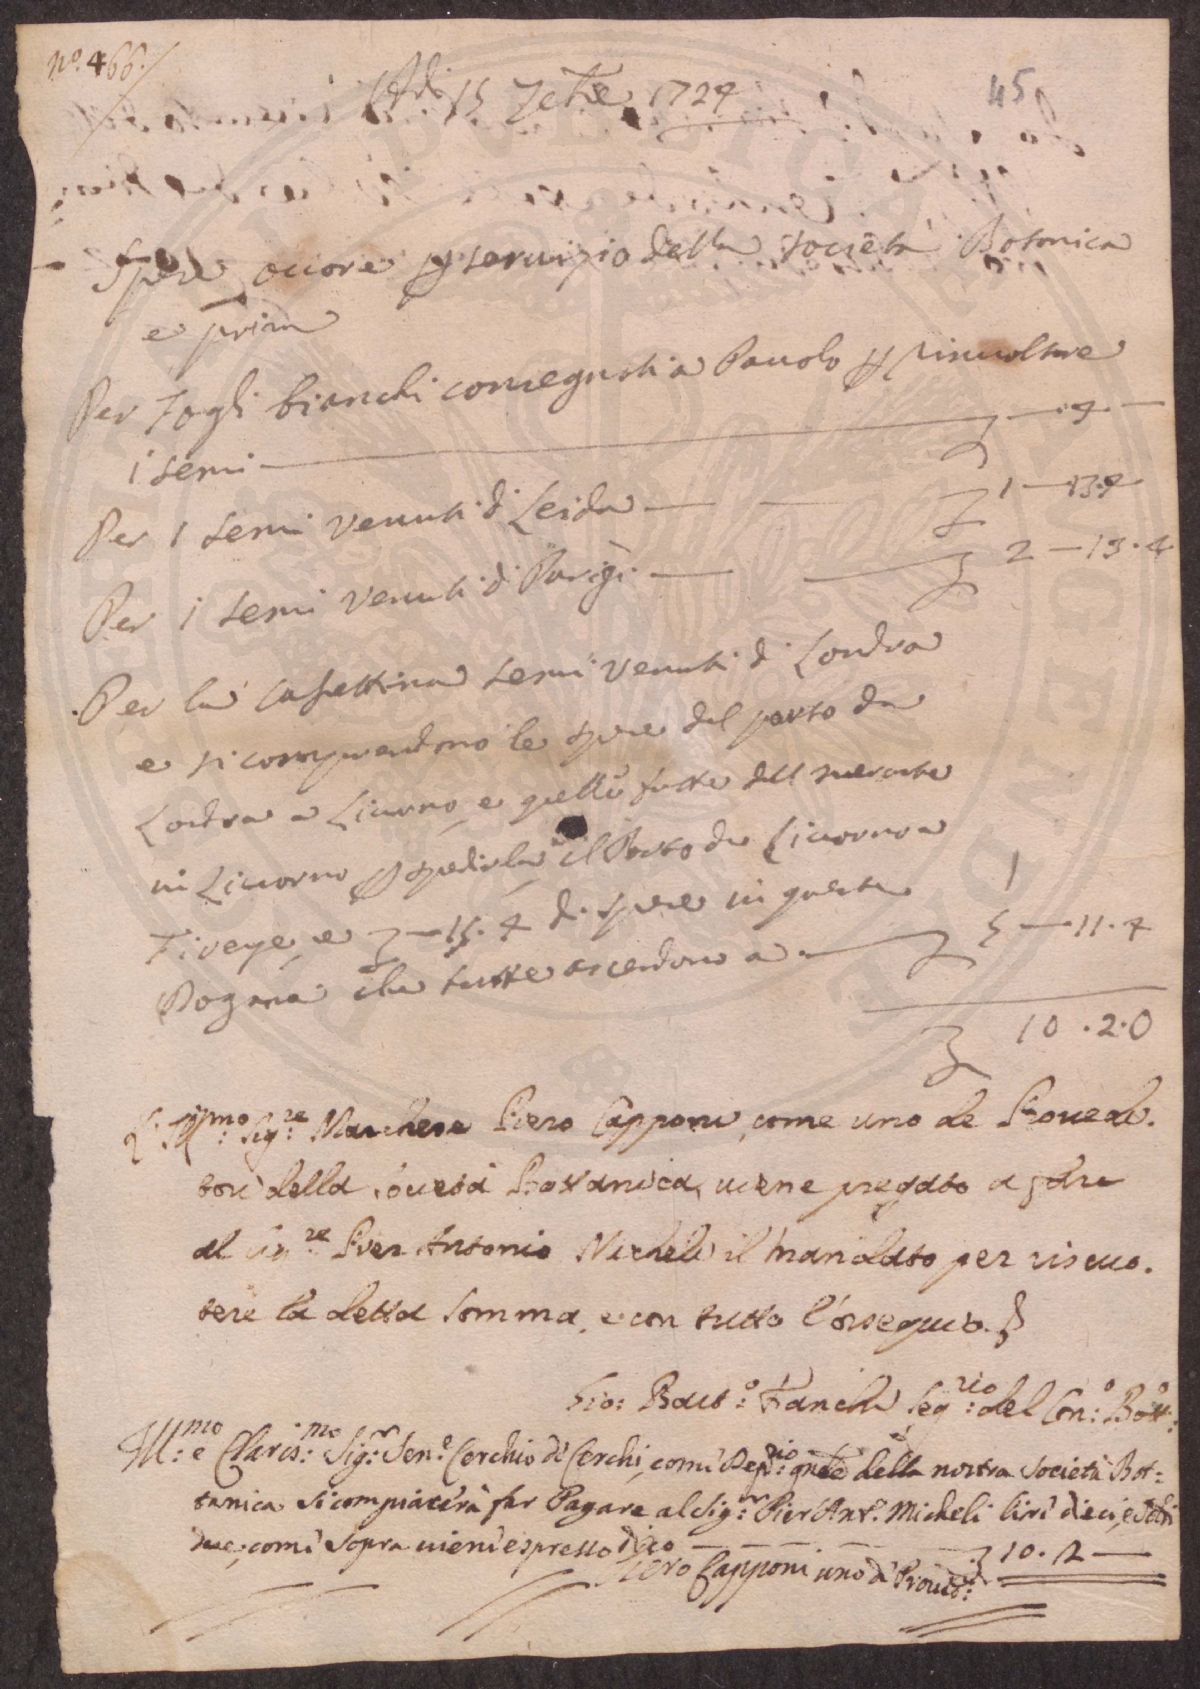 n.o 466.
45
Adi 15 7bre 1724
Spese occore p servizio della società Botanica
e prima
Per Fogli bianchi consegnati a Pauolo p rinvoltare
i semi — 9 —
Per i semi venuti di Leida — 1 — 13.4
Per i semi venuti di Parigi — 2 — 13.4
Per la casettina semi venuti di Londra
e si comprendono le spese del porto da
Londra a Livorno, e quelle fatte dal mercante
in Livorno p spedirla, il Porto da Livorno a
Firenze, e — 15.4 di spese in questa
Dogana che tutte ascendono a — 5 — 11.4
10.2.0
L'Ill:mo Sig:re Marchese Piero Capponi, come uno de Provedi.
tori della Società Bottanica, viene pregato a fare
al Sig:re Pier Antonio Micheli il mandato per riscuo.
tere la detta somma, e con tutto l'ossequio.
Gio: Batt:o Fanchi Seg:rio del Con:o Bott:o
Ill:mo e Claris:mo Sig:r Sen:e Cerchio di Cerchi, come Dep:rio della nostra Società Bot=
tanica si compiacerà far Pagare al Sig:r Pier Ant.o Micheli lire dieci, e soldi
due, come sopra viene espresso dico — 10.2 —
Piero Capponi uno di Proved:i